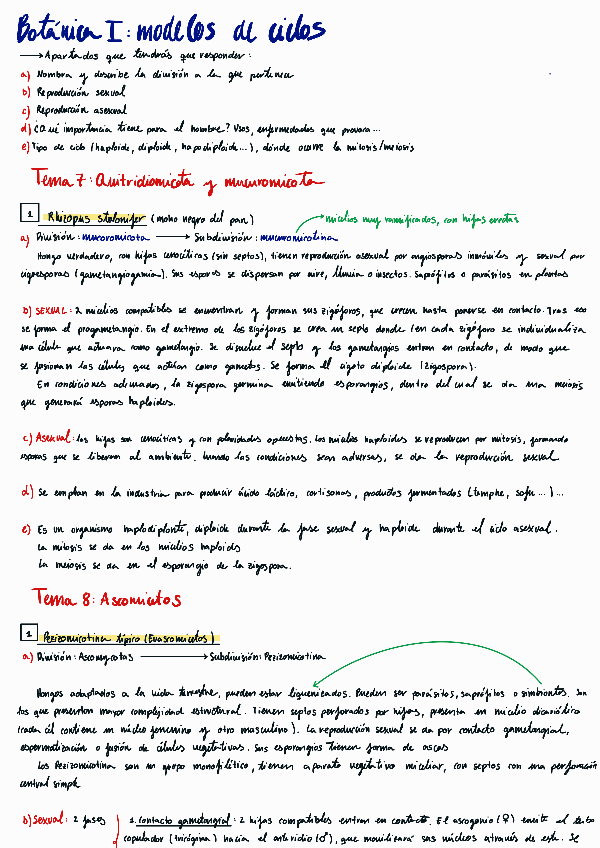 Botánica I: modelos de ciclos
→ Apartados que tendrás que responder:
a) Nombra y describe la división a la que pertenece
b) Reproducción sexual
c) Reproducción asexual
d) ¿Qué importancia tiene para el hombre? Usos, enfermedades que provoca...
e) Tipo de ciclo (haploide, diploide, haplodiploide...), dónde ocurre la mitosis/meiosis
Tema 7: Quitridiomicota y mucoromicota
1 Rhizopus stolonifer (moho negro del pan)
micelios muy ramificados, con hifas erectas
a) División: mucoromicota → Subdivisión: mucoromicotina
Hongo verdadero, con hifas cenocíticas (sin septos), tienen reproducción asexual por angiosporas inmóviles y sexual por
cigosporas (gametangiogamia). Sus esporas se dispersan por aire, lluvia o insectos. Saprófitos o parásitos en plantas
b) SEXUAL: 2 micelios compatibles se encuentran y forman sus zigóforos, que crecen hasta ponerse en contacto. Tras eso
se forma el progametangio. En el extremo de los zigóforos se crea un septo donde (en cada zigóforo se individualiza
una célula que actuará como gametangio. Se disuelve el septo y los gametangios entran en contacto, de modo que
se fusionan las células que actúan como gametos. Se forma el cigoto diploide (zigospora).
En condiciones adecuadas, la zigospora germina emitiendo esporangios, dentro del cual se da una meiosis
que generará esporas haploides.
c) Asexual: las hifas son cenocíticas y con polaridades opuestas. Los micelios haploides se reproducen por mitosis, formando
esporas que se liberan al ambiente. Cuando las condiciones sean adversas, se da la reproducción sexual
d) Se emplean en la industria para producir ácido láctico, cortisonas, productos fermentados (temphe, sofu...)...
e) Es un organismo haplodiplonte, diploide durante la fase sexual y haploide durante el ciclo asexual.
La mitosis se da en los micelios haploides
La meiosis se da en el esporangio de la zigospora.
Tema 8: Ascomicetos
1 Pezizomicotina típico (Euascomicetos)
a) División: Ascomycotas → Subdivisión: Pezizomicotina
Hongos adaptados a la vida terrestre, pueden estar liquenizados. Pueden ser parásitos, saprófitos o simbiontes. Son
los que presentan mayor complejidad estructural. Tienen septos perforados por hifas, presenta un micelio dicariótico
(cada cél contiene un núcleo femenino y otro masculino). La reproducción sexual se da por contacto gametangial,
espermatización o fusión de células vegetativas. Sus esporangios tienen forma de ascas
Los Pezizomicotina son un grupo monofilético, tienen aparato vegetativo miceliar, con septos con una perforación
central simple
b) Sexual: 2 fases 1. Contacto gametangial: 2 hifas compatibles entran en contacto. El ascogonio (♀) emite el tubo
copulador (tricógina) hacia el anteridio (♂), que movilizará sus núcleos através de este. Se